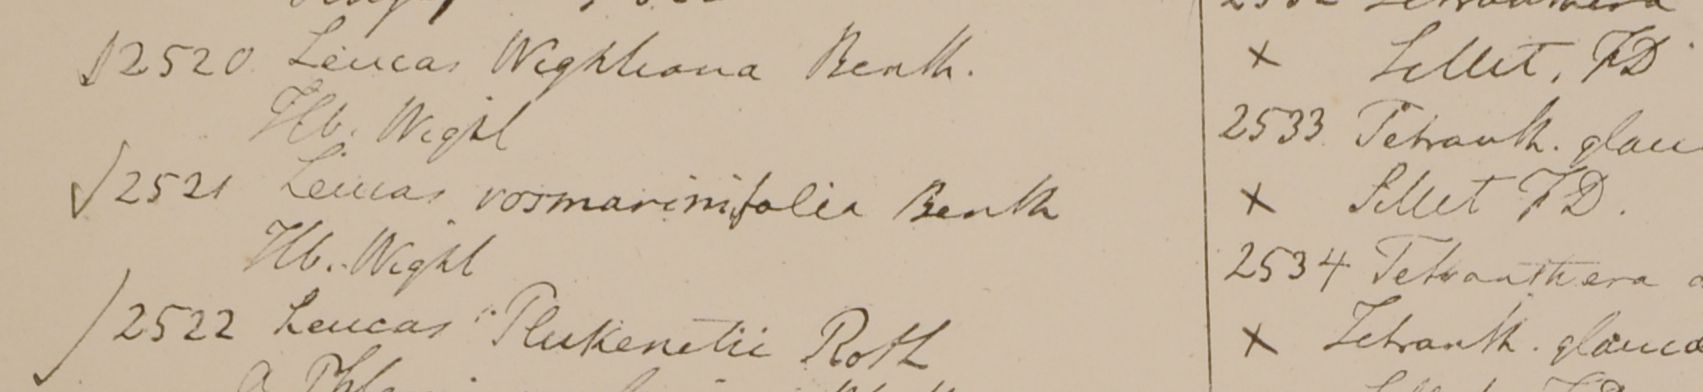 2520 Leucas Wightiana Benth.
Hb. Wight
2521 Leucas rosmarinifolia Benth
Hb. Wight
2522 Leucas Plukenetii Roth
× Sillet, FD
2533 Tetranth. glau
× Sillet FD.
2534 Tetranthera
× Tetranth. glauca